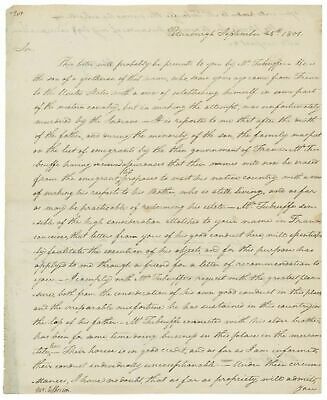 Petersburgh September 25th 1801.
Sir
This letter will probably be presented to you by Mr. Tubeuf. He is
the son of a gentleman of that name, who some years ago came from France
to the United States with a view of establishing himself in some part
of the western country, but in making the attempt, was unfortunately
murdered by the Indians. It is reported to me that after the death
of the father, and during the minority of the son the family was put
on the list of emigrants by the then government of France. Mr. Tu-
beuf having received assurances that their names will now be erased
from the emigrant list proposes to visit his native country with a view
of making his respects to his Mother who is still living, and as far
as may be practicable of redeeming his estate. Mr. Tubeuf sen-
sible of the high consideration attached to your name in France
conceives that letters from you of his good conduct here, will essentially
facilitate the execution of his objects and for this purpose has
applied to me through a friend for a letter of recommendation to
you. I comply with Mr. Tubeuf's request with the greatest plea-
sure both from the consideration of his own good conduct in this place
and the irreparable misfortune he has sustained in this country in
the loss of his father. Mr. Tubeuf connected with his elder brother
has been for some time doing business in this place in the mercan-
tile line. Their house is in good credit, and as far as I am informed,
their conduct uniformly unexceptionable. Under these circum-
stances, I have no doubt, that as far as propriety will admit,
Mr. Jefferson
your